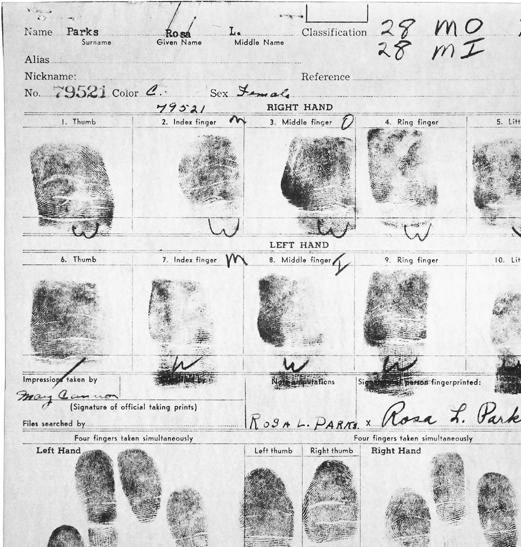 Name Parks Rosa L. Classification 28 MO
Surname Given Name Middle Name 28 MI
Alias
Nickname: Reference
No. 79521 Color C. Sex Female
79521 RIGHT HAND
1. Thumb 2. Index finger M 3. Middle finger O 4. Ring finger 5. Lit
W W W W
LEFT HAND
6. Thumb 7. Index finger M 8. Middle finger I 9. Ring finger 10. Lit
W W W
Impressions taken by Note amputations Signature of person fingerprinted:
(Signature of official taking prints)
Files searched by ROSA L. PARKS. x Rosa L. Park
Four fingers taken simultaneously Four fingers taken simultaneously
Left Hand Left thumb Right thumb Right Hand